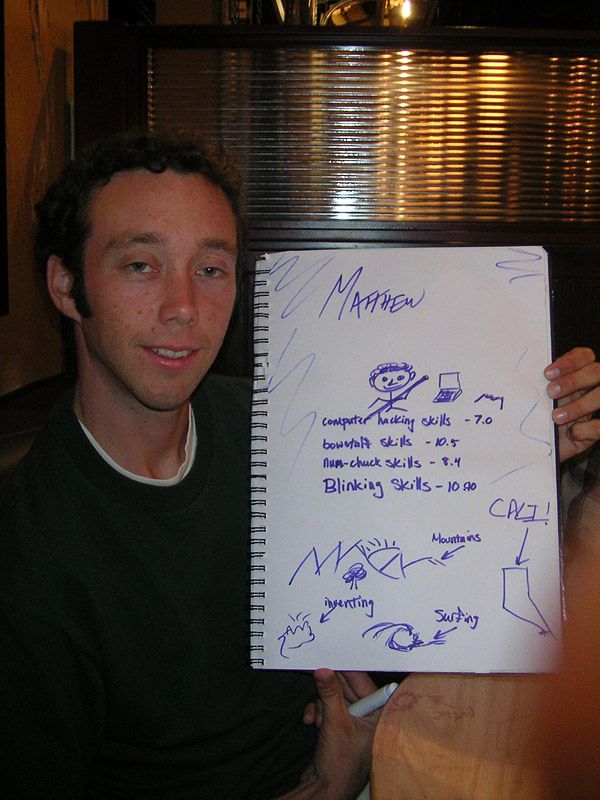 MATTHEW
computer hacking skills - 7.0
bowstaff skills - 10.5
num-chuck skills - 8.4
Blinking Skills - 10.50
CALI!
Mountains
inventing
Surfing